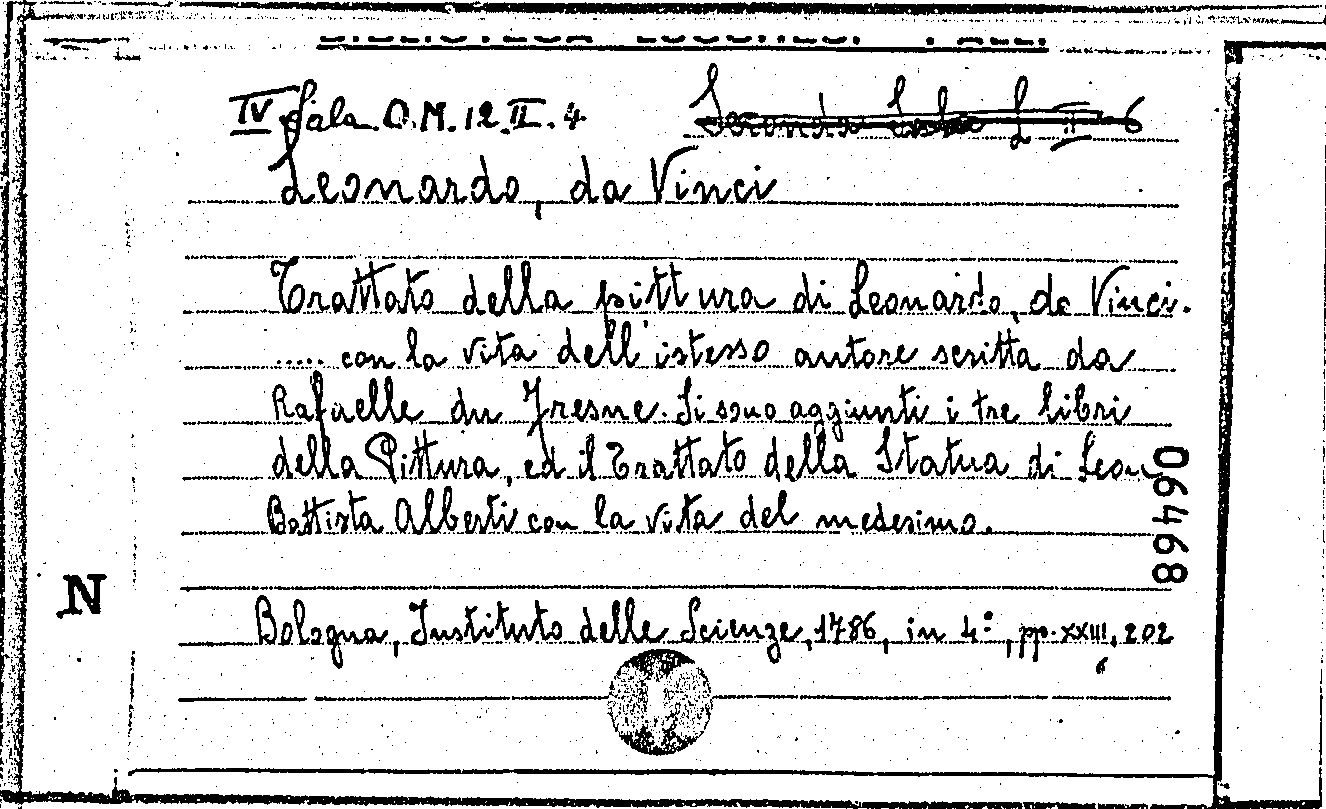 IV Sala O.M. 12.II.4
L II 6
Leonardo, da Vinci
Trattato della pittura di Leonardo, da Vinci.
..... con la vita dell'istesso autore scritta da
Rafaelle du Fresne. Si sono aggiunti i tre libri
della Pittura, ed il Trattato della Statua di Leon
Battista Alberti con la vita del medesimo.
06468
N
Bologna, Instituto delle Scienze, 1786, in 4º, pp. XXIII, 202